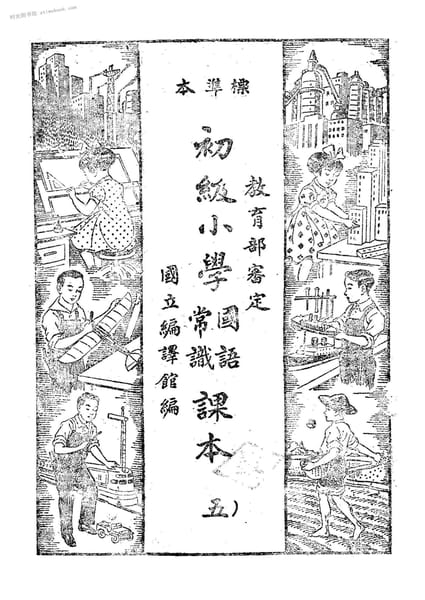 時光圖書館 atimebook.com
標準本
教育部審定
初級小學國語常識課本
五）
國立編譯館編